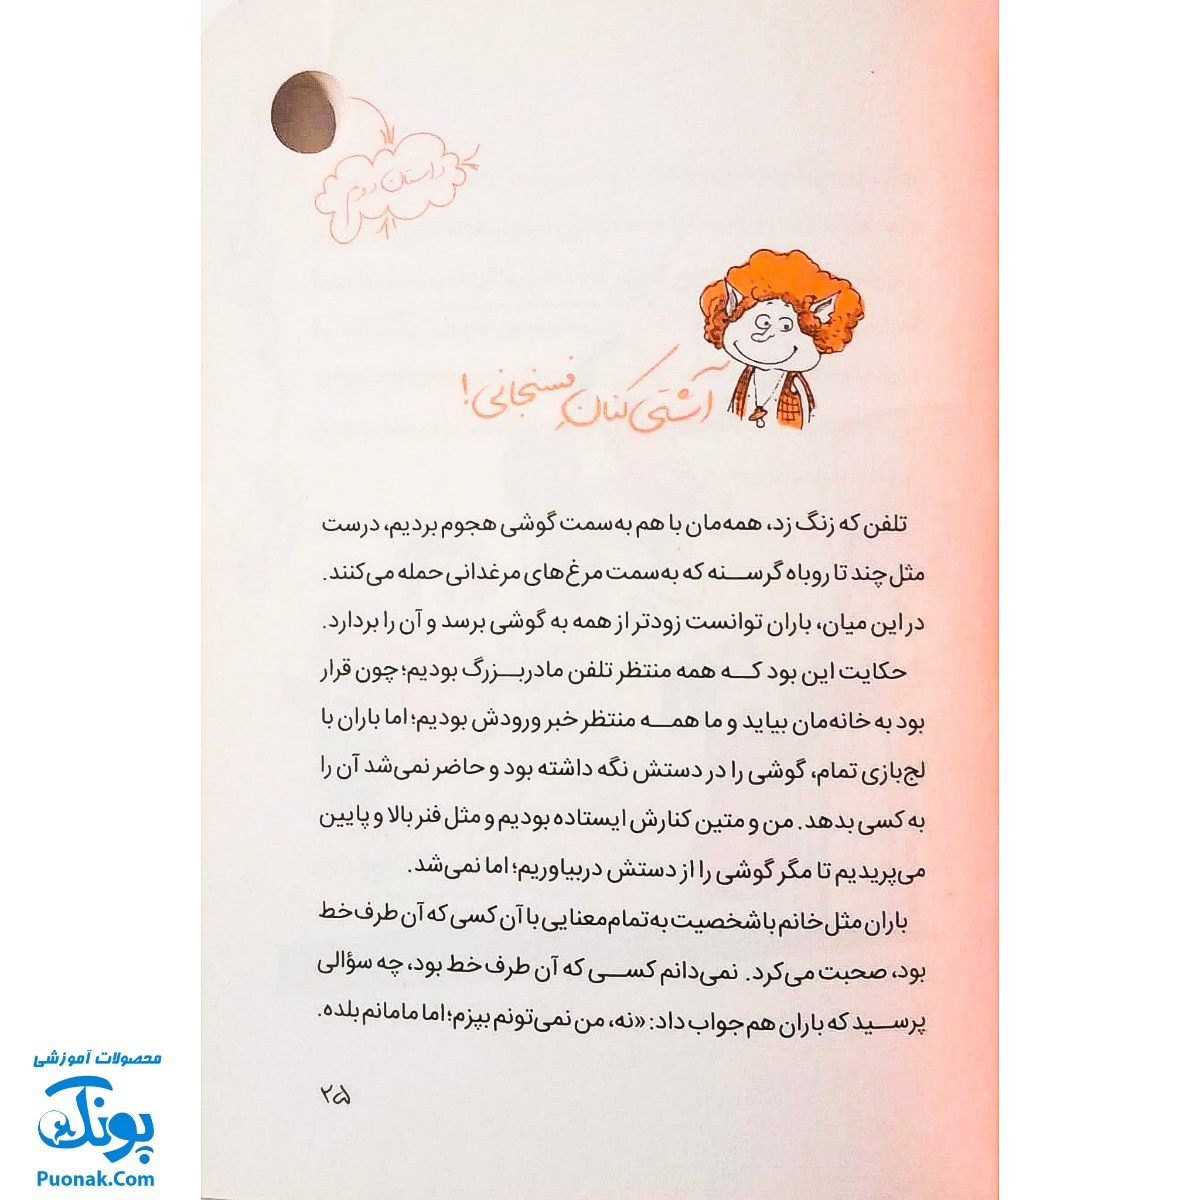 داستان دوم
آشتی‌کنانِ فسنجانی!
تلفن که زنگ زد، همه‌مان با هم به‌سمت گوشی هجوم بردیم، درست
مثل چند تا روباه گرسنه که به‌سمت مرغ‌های مرغدانی حمله می‌کنند.
در این میان، باران توانست زودتر از همه به گوشی برسد و آن را بردارد.
حکایت این بود که همه منتظر تلفن مادربزرگ بودیم؛ چون قرار
بود به خانه‌مان بیاید و ما همه منتظر خبر ورودش بودیم؛ اما باران با
لج‌بازی تمام، گوشی را در دستش نگه داشته بود و حاضر نمی‌شد آن را
به کسی بدهد. من و متین کنارش ایستاده بودیم و مثل فنر بالا و پایین
می‌پریدیم تا مگر گوشی را از دستش دربیاوریم؛ اما نمی‌شد.
باران مثل خانم باشخصیت به‌تمام‌معنایی با آن کسی که آن طرف خط
بود، صحبت می‌کرد. نمی‌دانم کسی که آن طرف خط بود، چه سؤالی
پرسید که باران هم جواب داد: «نه، من نمی‌تونم بپزم؛ اما مامانم بلده.
۲۵
محصولات آموزشی
پونک
Puonak.Com